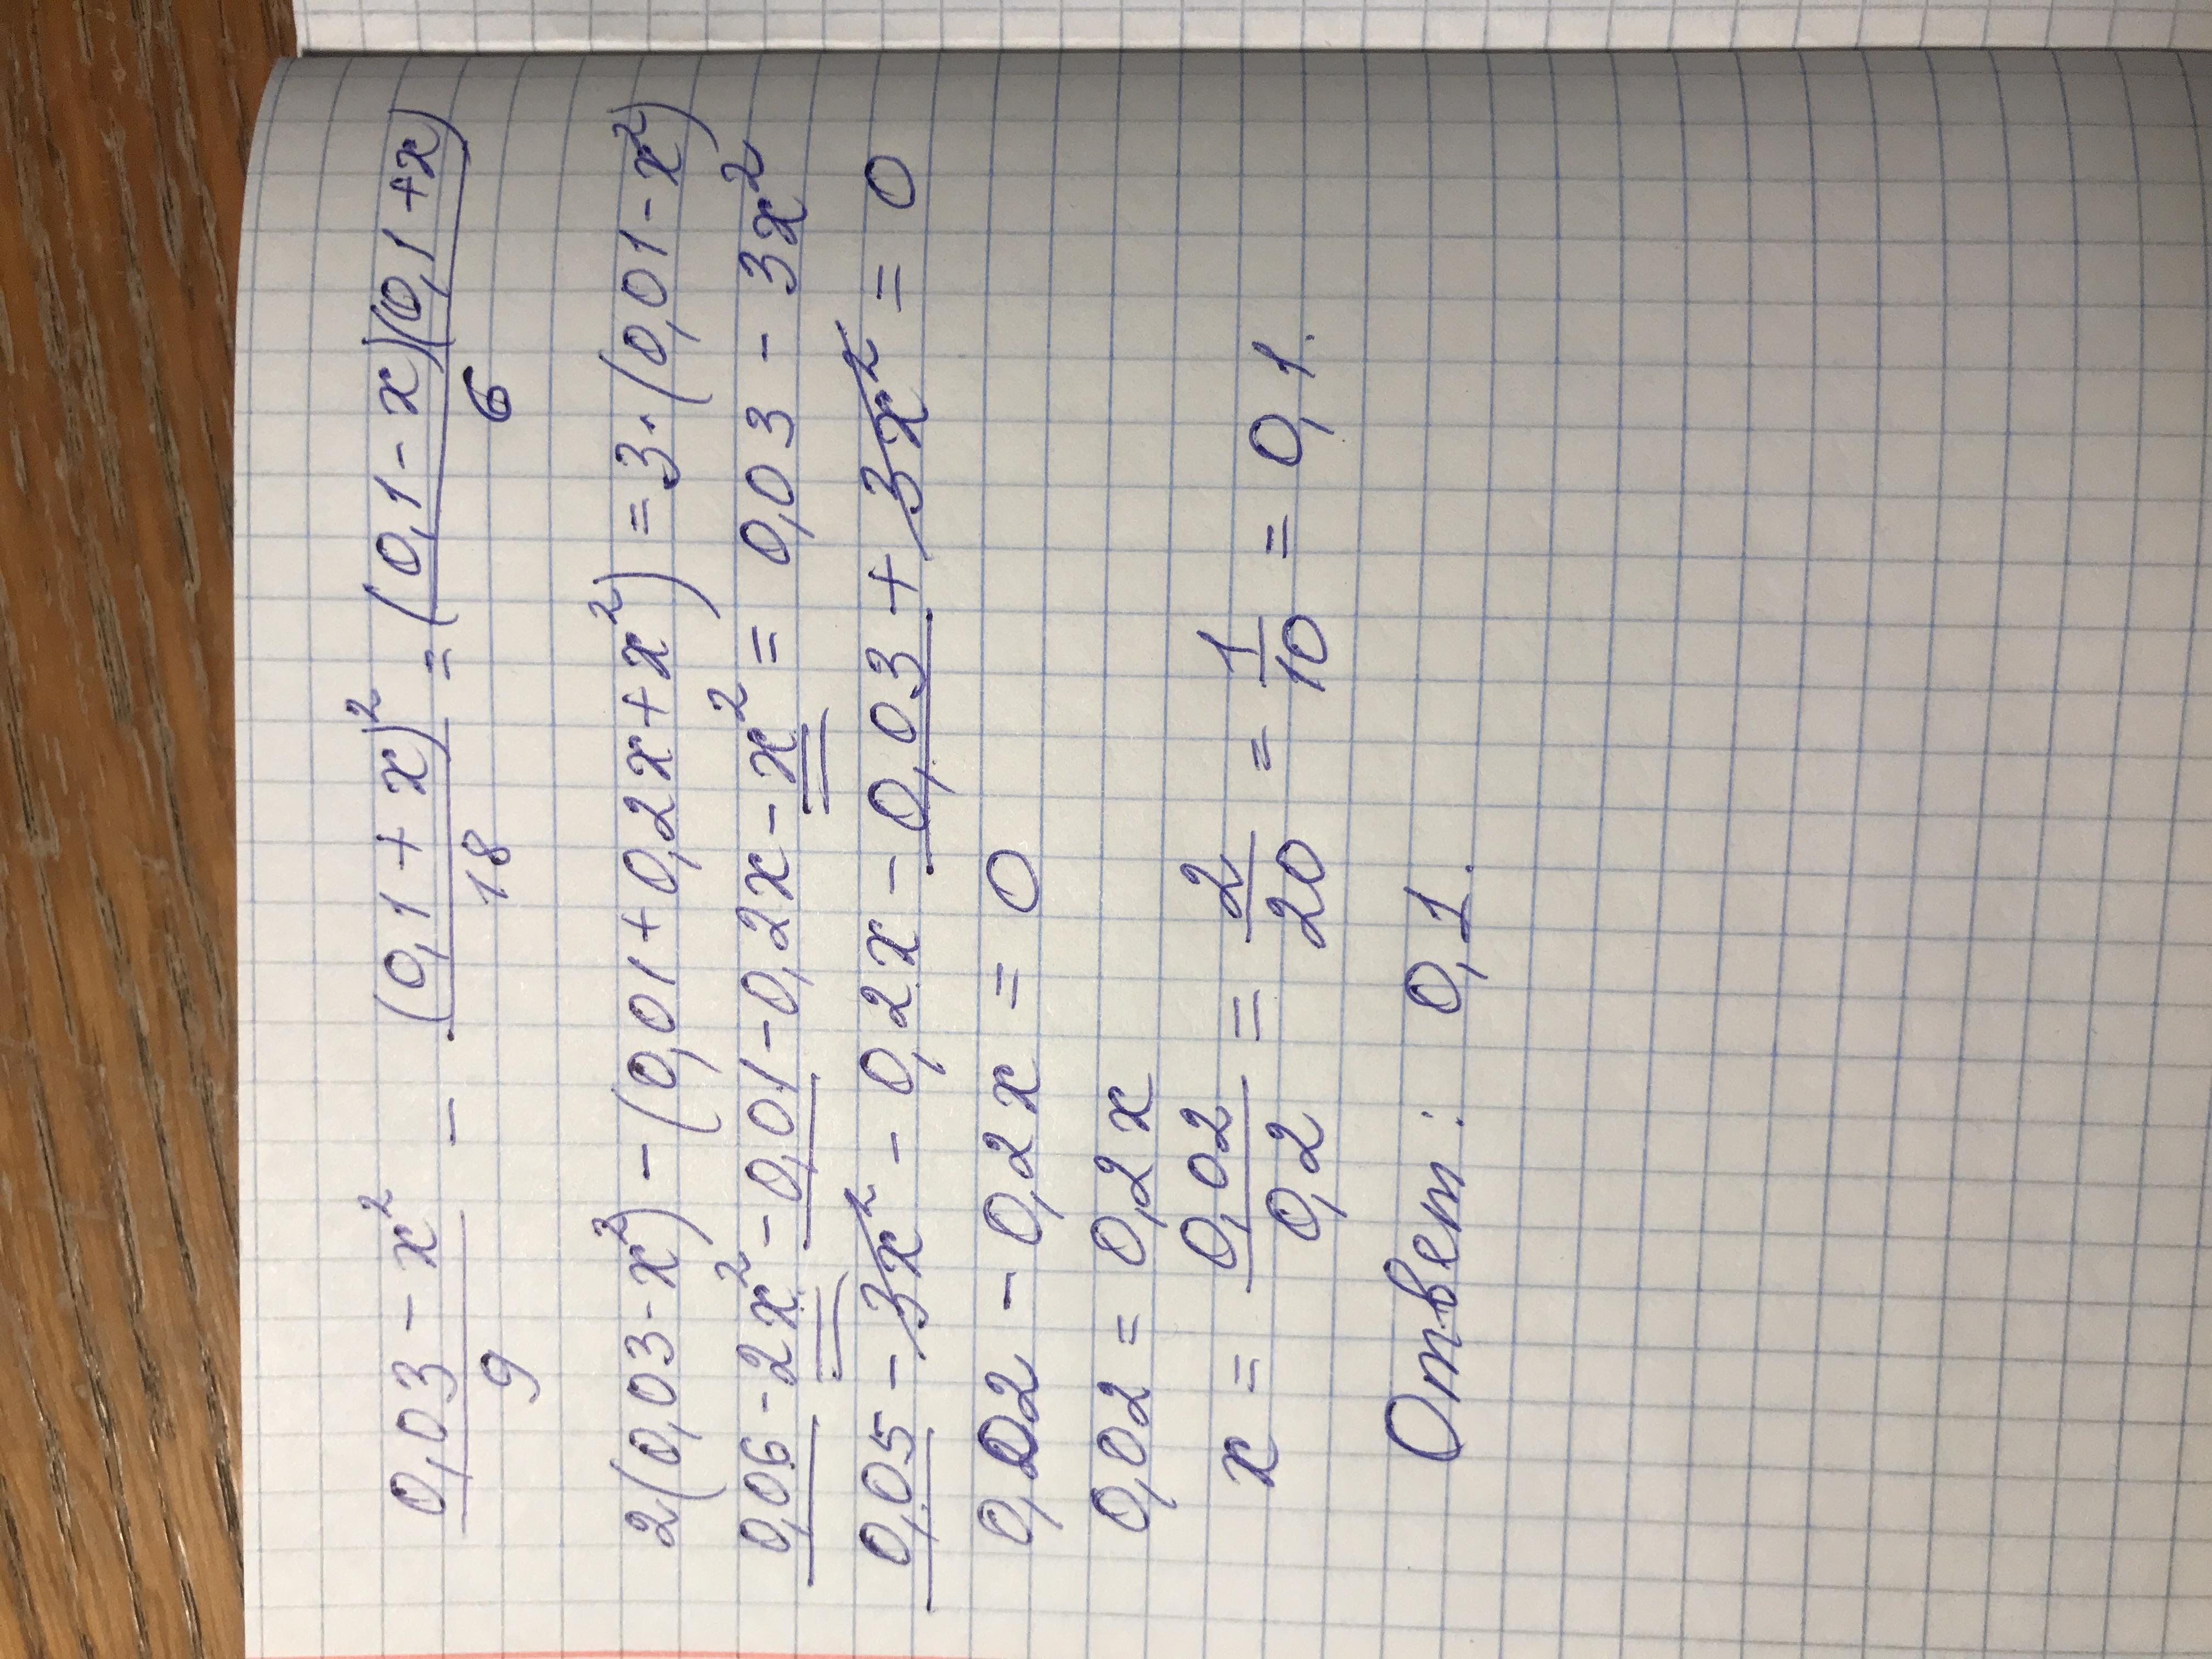 (0,03 - x²)/9 - (0,1 + x)²/18 = (0,1 - x)(0,1 + x)/6
2(0,03 - x²) - (0,01 + 0,2x + x²) = 3·(0,01 - x²)
0,06 - 2x² - 0,01 - 0,2x - x² = 0,03 - 3x²
0,05 - 3x² - 0,2x - 0,03 + 3x² = 0
0,02 - 0,2x = 0
0,02 = 0,2x
x = 0,02/0,2 = 2/20 = 1/10 = 0,1.
Ответ: 0,1.